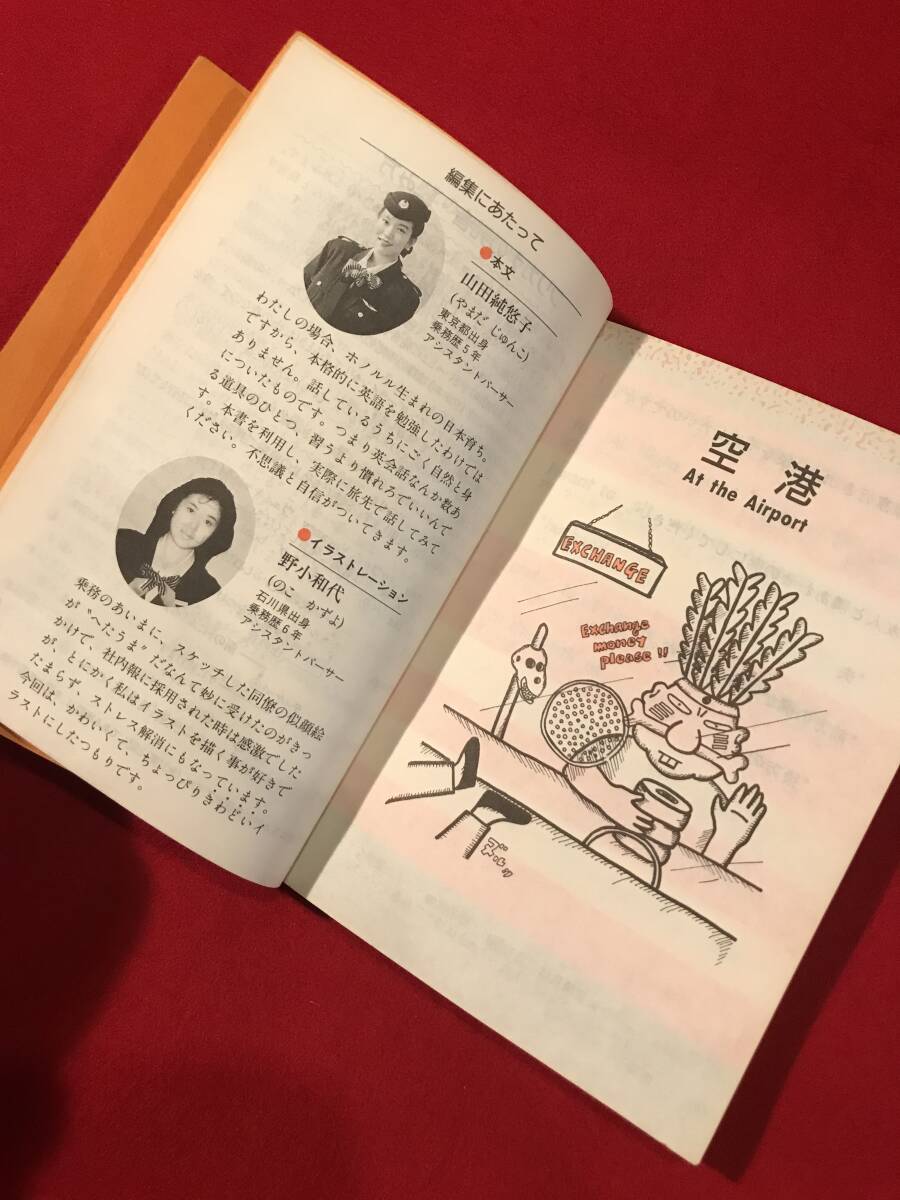 編集にあたって
●本文
山田純悠子
(やまだ じゅんこ)
東京都出身
乗務歴5年
アシスタントパーサー
わたしの場合、ホノルル生まれの日本育ち。
ですから、本格的に英語を勉強したわけでは
ありません。話しているうちにごく自然と身
についたものです。つまり英会話なんか数あ
る道具のひとつ、習うより慣れろでいいんで
す。本書を利用し、実際に旅先で話してみて
ください。不思議と自信がついてきます。
●イラストレーション
野小和代
(のこ かずよ)
石川県出身
乗務歴6年
アシスタントパーサー
乗務のあいまに、スケッチした同僚の似顔絵
が“へたうま”だなんて妙に受けたのがきっ
かけで、社内報に採用された時は感激でした
が、とにかく私はイラストを描く事が好きで
たまらず、ストレス解消にもなっています。
今回は、かわいくて、ちょっぴりきわどいイ
ラストにしたつもりです。
空港
At the Airport
EXCHANGE
Exchange
money
please!!
ズルッ